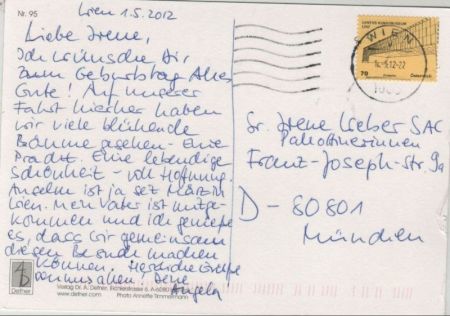 Nr. 95
Wien 1.5.2012
Liebe Irene,
Ich wünsche Dir,
zum Geburtstag Alles
Gute! Auf unserer
Fahrt hierher haben
wir viele blühende
Bäume gesehen - Eine
Pracht. Eine lebendige
Schönheit - voll Hoffnung.
Anselm ist ja seit März in
Wien. Mein Vater ist mitge-
kommen und ich genieße
es, dass wir gemeinsam
diesen Besuch machen
können. Herzliche Grüße
Deine
Angela
WIEN
70
Österreich
Sr. Irene Weber SAC
Pallottinerinnen
Franz-Joseph-str. 9a
D - 80801
München
Verlag Dr. A. Defner, Eichlerstrasse 6, A-6080
www.defner.com Photo Annette Timmermann